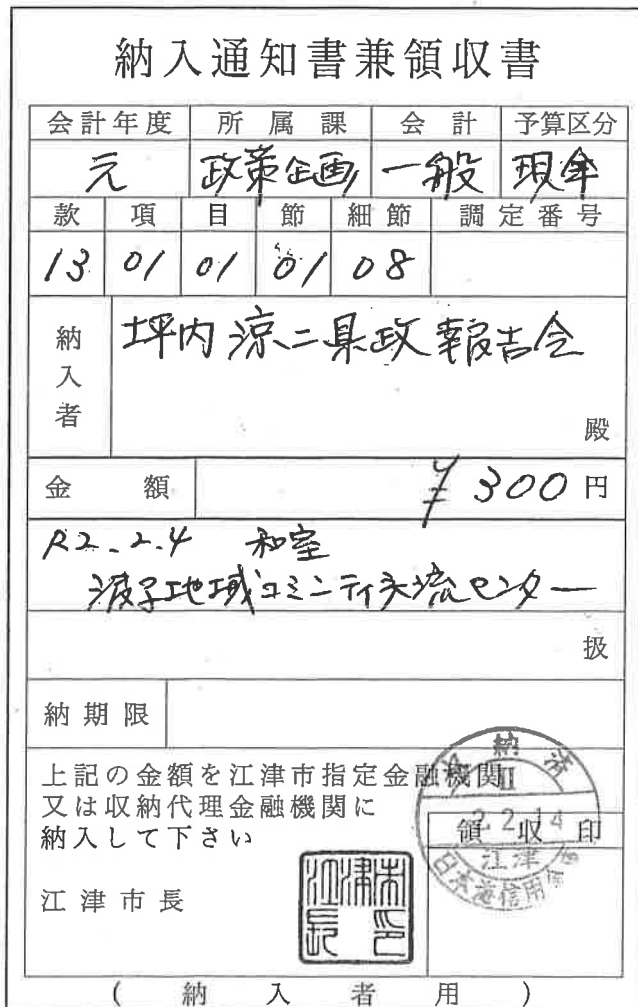 納入通知書兼領収書
会計年度 所属課 会計 予算区分
元 政策企画 一般 現年
款 項 目 節 細節 調定番号
13 01 01 01 08
納入者 坪内涼二県政報告会
殿
金額 ¥300円
R2.2.4 和室
波子地域コミニティ交流センター
扱
納期限
上記の金額を江津市指定金融機関
又は収納代理金融機関に
納入して下さい
領収印
江津市長
江津市長之印
納済
II
2.2.14
江津
日本海信用金庫
(納入者用)